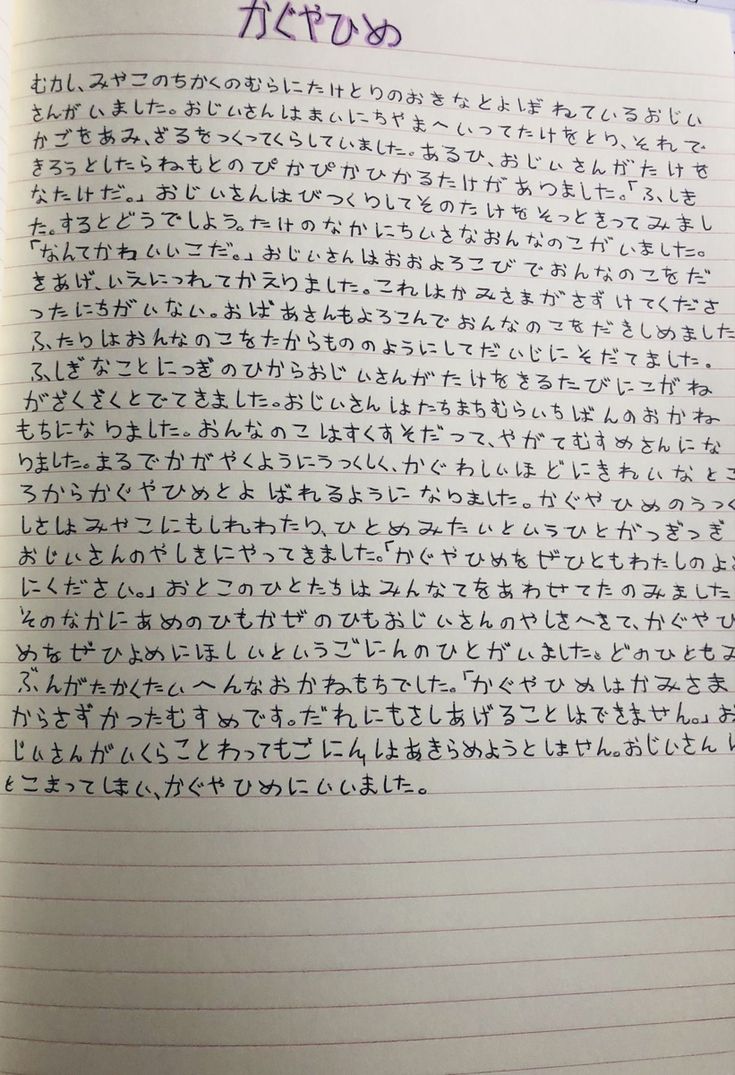 かぐやひめ
むかし、みやこのちかくのむらにたけとりのおきなとよばねているおじい
さんがいました。おじいさんはまいにちやまへいつてたけをとり、それで
かごをあみ、ざるをつくってくらしていました。あるひ、おじいさんがたけを
きろうとしたらねもとのぴかぴかひかるたけがありました。「ふしき
なたけだ。」おじいさんはびつくりしてそのたけをそっときってみまし
た。するとどうでしよう。たけのなかにちいさなおんなのこがいました。
「なんてかわいいこだ。」おじいさんはおおよろこびでおんなのこをだ
きあげ、いえにつれてかえりました。これはかみさまがさずけてくださ
つたにちがいない。おばあさんもよろこんでおんなのこをだきしめました
ふたりはおんなのこをたからもののようにしてだいじにそだてました。
ふしぎなことにつぎのひからおじいさんがたけをきるたびにこがね
がざくざくとでてきました。おじいさんはたちまちむらいちばんのおかね
もちになりました。おんなのこはすくすそだって、やがてむすめさんにな
りました。まるでかがやくようにうつくしく、かぐわしいほどにきれいなとこ
ろからかぐやひめとよばれるようになりました。かぐやひめのうつく
しさはみやこにもしれわたり、ひとめみたいというひとがつぎつぎ
おじいさんのやしきにやってきました。「かぐやひめをぜひともわたしのよめ
にください。」おとこのひとたちはみんなてをあわせてたのみました
そのなかにあめのひもかぜのひもおじいさんのやしきへきて、かぐやひ
めをぜひよめにほしいというごにんのひとがいました。どのひともみ
ぶんがたかくたいへんなおかねもちでした。「かぐやひめはかみさま
からさずかつたむすめです。だれにもさしあげることはできません。」お
じいさんがいくらことわってもごにんはあきらめようとしません。おじいさんは
とこまってしまい、かぐやひめにいいました。